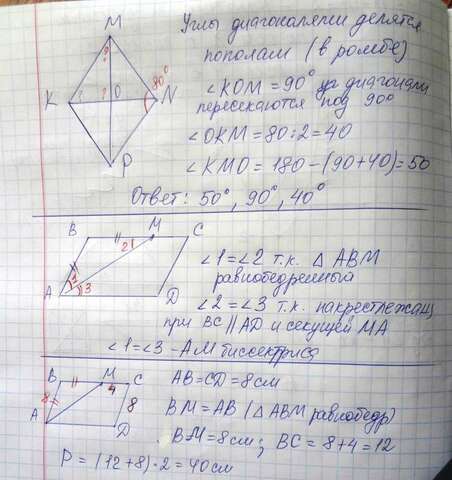 Углы диагоналями делятся
пополам (в ромбе)
M
?
K ? ? O N 80°
P
∠KOM = 90° диагонали
пересекаются под 90°
∠OKM = 80:2 = 40
∠KMO = 180-(90+40)=50
Ответ: 50°, 90°, 40°
B M C
2
1
3
A D
∠1=∠2 т.к. △ ABM
равнобедренный
∠2=∠3 т.к. накрестлежащ
при BC || AD и секущей MA
∠1=∠3 - AM биссектриса
B M C
4
8 8
A D
AB=CD=8см
BM=AB (△ABM равнобедр)
BM=8см; BC = 8+4=12
P = (12+8)·2 = 40см